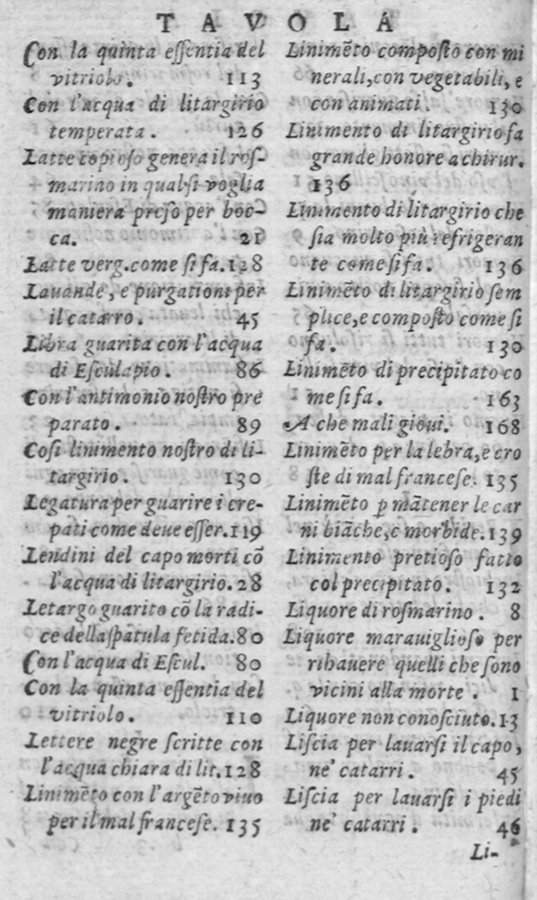 TAVOLA
Con la quinta essentia del
vitriolo. 113
Con l'acqua di litargirio
temperata. 126
Latte copioso genera il ros-
marino in qualsi voglia
maniera preso per boc-
ca. 21
Latte verg. come si fa. 128
Lauande, e purgationi per
il catarro. 45
Libra guarita con l'acqua
di Esculapio. 86
Con l'antimonio nostro pre
parato. 89
Cosi linimento nostro di li-
targirio. 130
Legatura per guarire i cre-
pati come deue esser. 119
Lendini del capo morti cõ
l'acqua di litargirio. 28
Letargo guarito cõ la radi-
ce della spatula fetida. 80
Con l'acqua di Escul. 80
Con la quinta essentia del
vitriolo. 110
Lettere negre scritte con
l'acqua chiara di lit. 128
Linimẽto con l'argẽto viuo
per il mal francese. 135
Linimẽto composto con mi
nerali, con vegetabili, e
con animati 130
Linimento di litargirio fa
grande honore a chirur.
136
Linimento di litargirio che
sia molto più refrigeran
te come si fa. 136
Linimẽto di litargirio sem
plice, e composto come si
fa. 130
Linimẽto di precipitato co
me si fa. 163
A che mali gioui. 168
Linimẽto per la lebra, e cro
ste di mal francese. 135
Linimẽto p mãtener le car
ni biãche, e morbide. 139
Linimento pretioso fatto
col precipitato. 132
Liquore di rosmarino. 8
Liquore marauiglioso per
rihauere quelli che sono
vicini alla morte. 1
Liquore non conosciuto. 13
Liscia per lauarsi il capo,
ne' catarri. 45
Liscia per lauarsi i piedi
ne' catarri. 46
Li-